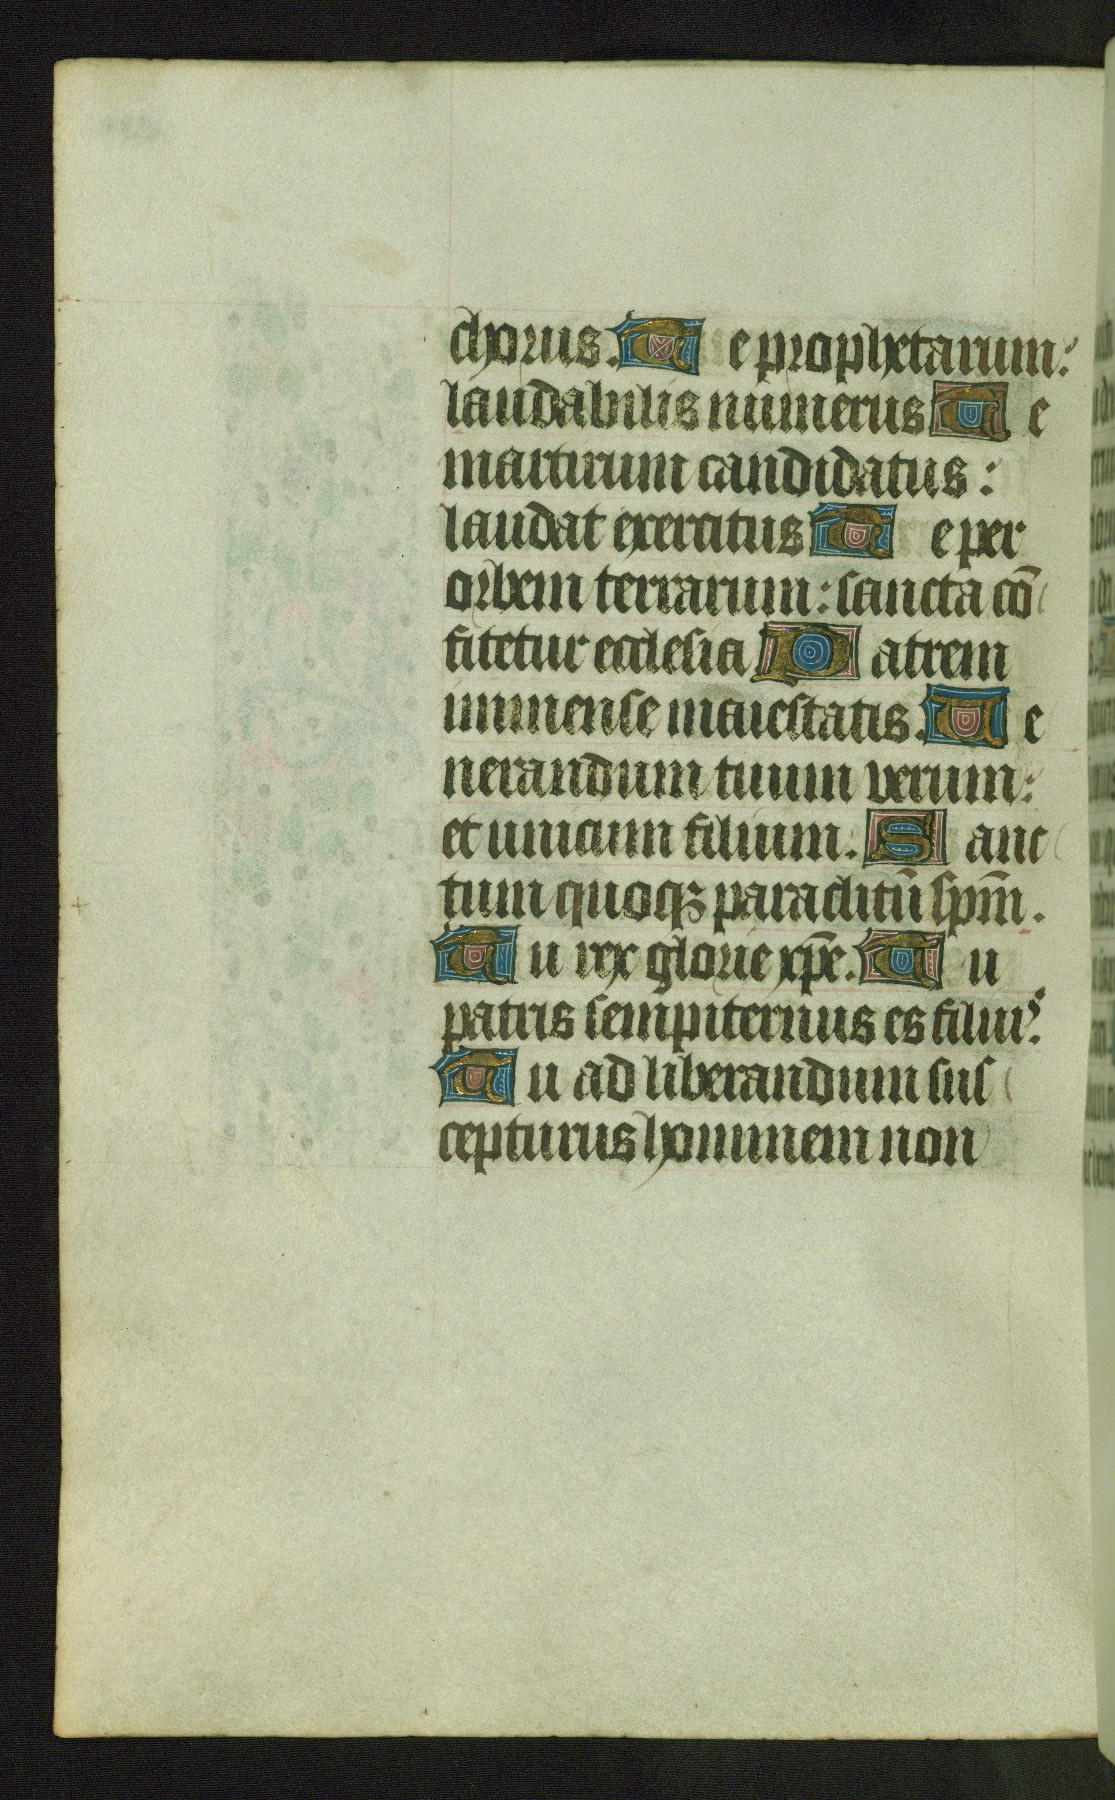 chorus. Te prophetarum:
laudabilis numerus Te
martirum candidatus:
laudat exercitus Te per
orbem terrarum: sancta cō
fitetur ecclesia Patrem
immense maiestatis. Ve
nerandum tuum verum:
et unicum filium. Sanc
tum quoqꝫ paraclitū sp̄m.
Tu rex glorie xp̄e. Tu
patris sempiternus es filiꝰ.
Tu ad liberandum sus
cepturus hominem non